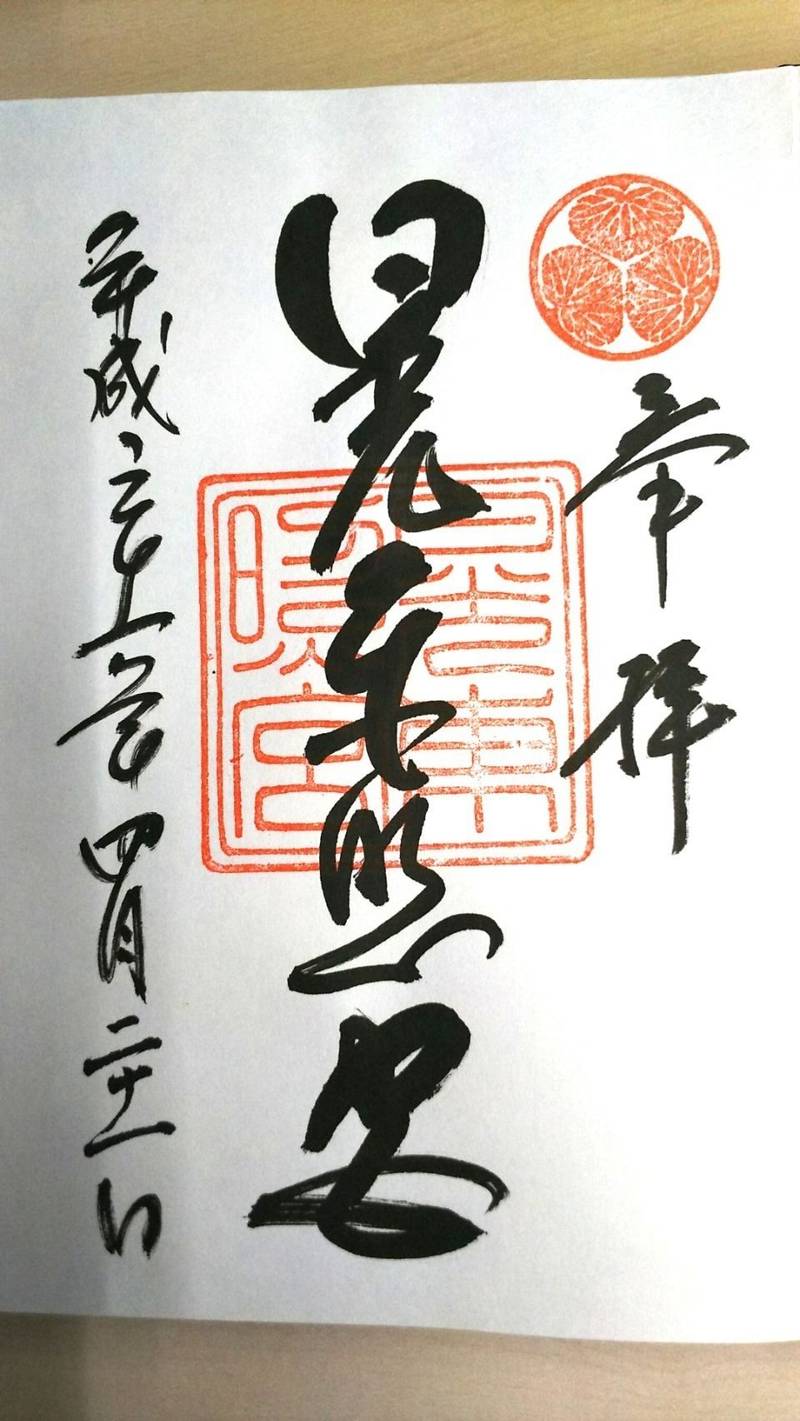 奉拝
日光東照宮
日光東照宮
平成三十一年四月二十一日